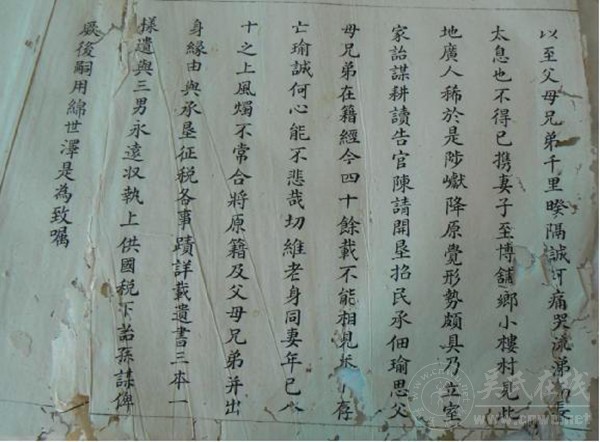 以至父母兄弟千里睽隔誠可痛哭流涕長
太息也不得已携妻子至博舖鄉小樓村見此
地廣人稀於是陟巘降原覺形勢頗具乃立室
家詒謀耕讀告官陳請開墾招民承佃瑜思父
母兄弟在籍經今四十餘載不能相見存
亡瑜誠何心能不悲哉切維老身同妻年已八
十之上風燭不常合將原籍及父母兄弟并出
身緣由與承墾征稅各事蹟詳載遺書三本一
樣遺與三男永遠収執上供國稅下詒孫謀俾
厥後嗣用綿世澤是為致囑
吴氏在线